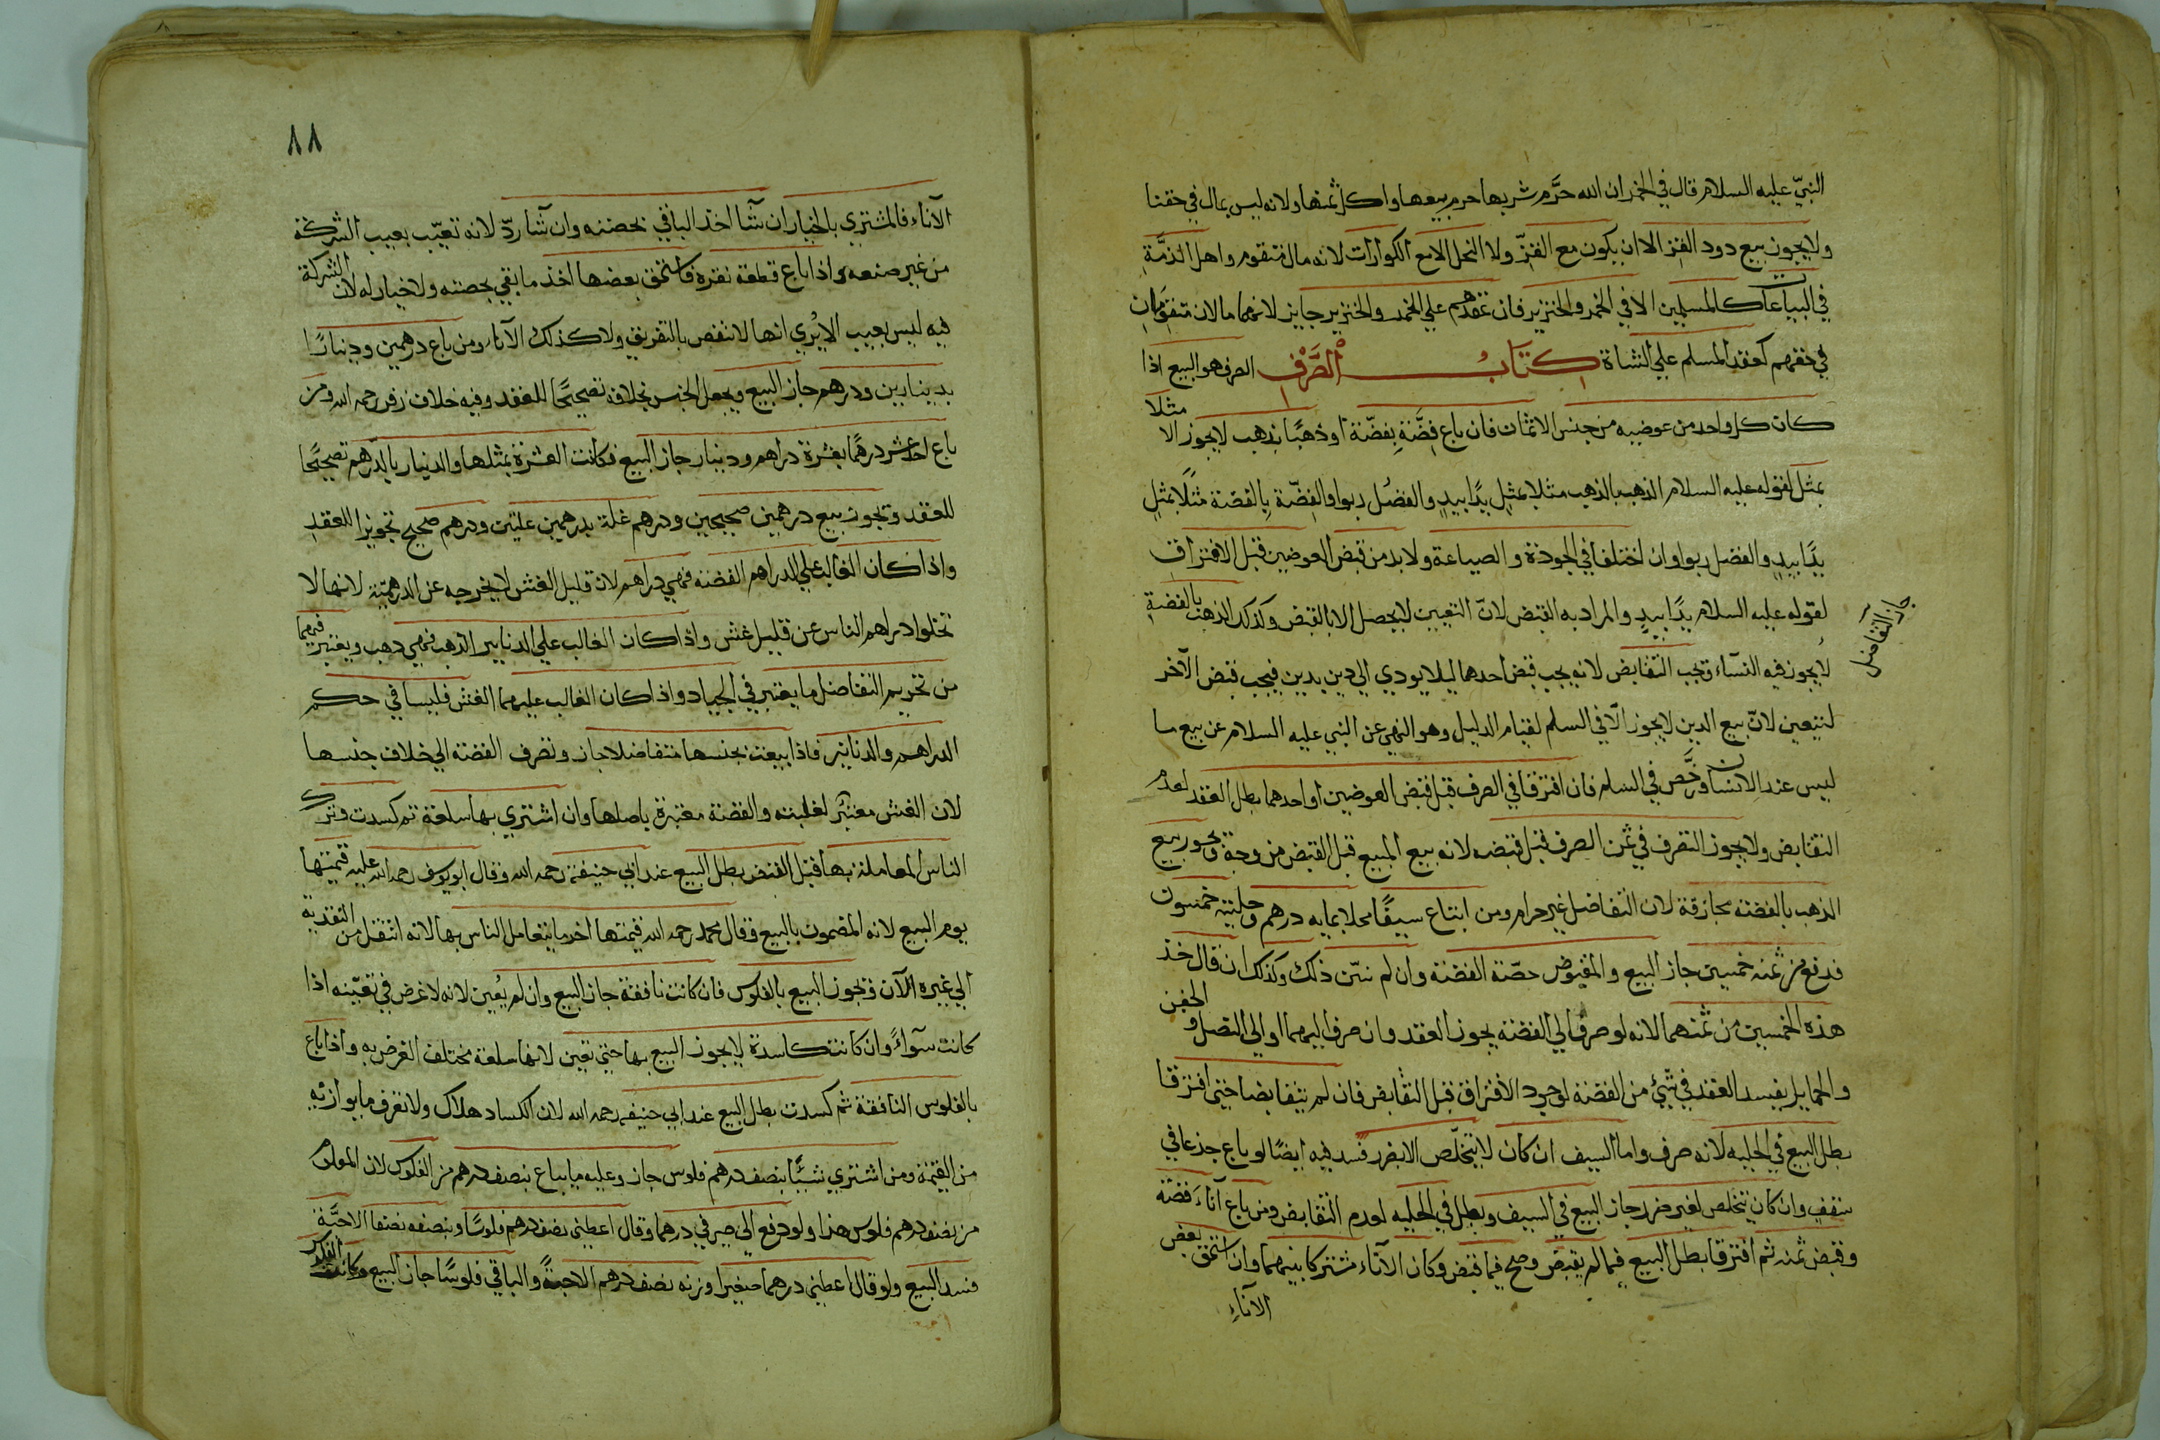 النبيّ عليه السلام قال في الخمر ان الله حرَّم شربها حرم بيعها واكل ثمنها ولانه ليس بمال في حقنا
ولا يجوز بيع دود القز الا ان يكون مع القزّ ولا النحل الا مع الكوارات لانه مال متقوم واهل الذمَّةِ
في البياعات كالمسلمين الا في الخمر والخنزير فان عقدهم علي الخمر والخنزير جايز لانهما مالان متقومان
في حقهم كعقد المسلم علي الشاة كتاب الصَّرْفِ الصرف هو البيع اذا
كان كل واحد من عوضيه من جنس الاثمان فان باع فِضَّة بِفضّة او ذهبًا بذهب لا يجوز الا مثلا
بمثل لقوله عليه السلام الذهب بالذهب مثلا بمثل يدًا بيدٍ والفضل ربوا والفضّة بالفضة مثلًا بمثلٍ
يدًا بيدٍ والفضل ربوا وان اختلفا في الجودة والصياغة ولا بد من قبض العوضين قبل الافتراق
لقوله عليه السلام يدًا بيدٍ والمراد به القبض لانّ التعيين لا يحصل الا بالقبض وكذلك الذهب بالفضةِ
جاز التفاضل
لا يجوز فيه النسآء وتجب التقابض لانه يجب قبض احدهما ليلا يودي الي دين بدين فيجب قبض الآخر
لتتعين لانّ بيع الدين لا يجوز الّا في السلم لقيام الدليل وهو النهي عن النبي عليه السلام عن بيع ما
ليس عند الانسان ورخَّص في السلم فان افترقا في الصرف قبل قبض العوضين او احدهما بطل العقد لعدم
التقابض ولا يجوز التصرف في ثمن الصرف قبل قبضه لانه بيع المبيع قبل القبض من وجه ويجوز بيع
الذهب بالفضة مجازفة لان التفاضل غير حرام ومن ابتاع سيفًا محلا بمايه درهم وحليته خمسون
فدفع من ثمنه خمسين جاز البيع والمقبوض حصّة الفضة وان لم نبيّن ذلك وكذلك ان قال خذ
هذه الخمسين من ثمنهما لانه لو صرف الي الفضه يجوز العقد وان صرف اليهما او الي النصل والجفن
والحمايل يفسد العقد في شيئ من الفضة لوجود الافتراق قبل التقابض فان لم يتقابضا حتي افترقا
بطل البيع في الحليه لانه صرف واما السيف ان كان لا يتخلّص الا بضرر فسد فيه ايضًا لو باع جذعا في
سقفٍ وان كان يتخلص لغير ضرر جاز البيع في السيف وبطل في الحليه لعدم التقابض ومن باع آناءَ فضة
وقبض ثمنه ثم افترقا بطل البيع فيما لم يقبض وصح فيما قبض وكان الآناء مشتركا بينهما وان استحق بعض
الآناءِ
٨٨
الآناء فالمشتري بالخيار ان شآ اخذ الباقي بحصته وان شآ ردّ لانه تعيّب بعيب الشركة
من غير صنعه واذا باع قطعة نقره فاستحق بعضها اخذ ما بقي بحصته ولا خيار له لان الشركة
فيه ليس بعيب الا يُري انها لا تنقص بالتفريق ولا كذلك الآناء ومن باع درهمين ودينارًا
بدينارين ودرهم جاز البيع ويجعل الجنس بخلافه تصحيحًا للعقد وفيه خلاف زفر رحمه الله ومن
باع احد عشر درهمًا بعشرة دراهم ودينار جاز البيع فكانت العشرة بمثلها والدنيار بالدّرهم تصحيحًا
للعقد وتجوز بيع درهمين صحيحين ودرهم غلة بدرهمين غلتين ودرهم صحيح تجويزا للعقد
واذا كان الغالب علي الدراهم الفضه فهي دراهم لان قليل الغش لا يخرجه عن الدرهميّة لانها لا
تخلوا دراهم الناس عن قليل غش واذا كان الغالب علي الدنانير الذهب فهي ذهب ويعتبر فيهما
من تحريم التفاضل ما يعتبر في الجياد واذا كان الغالب عليهما الغش فليسا في حكم
الدراهم والدنانير فاذا بيعت بجنسها متفاضلا جاز وتصرف الفضه الي خلاف جنسها
لان الغش معتبَر لغلبته والفضة معتبرة باصلها وان اشتري بها سلعة ثم كسدت وترك
الناس المعاملة بها قبل القبض بطل البيع عند ابي حنيفة رحمه الله وقال ابو يوسف رحمه الله عليه قيمتها
يوم البيع لانه المضمون بالبيع وقال محمد رحمه الله قيمتها اخر ما يتعامل الناس بها لانه انتقل من النقدية
الي غيره الآن وتجوز البيع بالفلوس فان كانت نافقة جاز البيع وان لم يُعين لانه لا غرض في تعيّنه اذا
كانت سوآءً وان كانت كاسدة لا يجوز البيع بها حتي تعين لانها سلعة مختلف الغرض به واذا باع
بالفلوس النافقة ثم كسدت بطل البيع عند ابي حنيفه رحمه الله لان الكساد هلاك ولا نعرف ما يوازيه
من القيمة ومن اشتري شيئًا بنصف درهم فلوس جاز وعليه ما يباع بنصف درهم من الفلوس لان المعلوم
من نصف درهم فلوس هذا ولو دفع الي صيرفي درهما وقال اعطني بنصف درهم فلوسًا وبنصفه نصفا الا حبَّة
فسد البيع ولو قال اعطني درهما صغيرا وزنه نصف درهم الا حبةً والباقي فلوسًا جاز البيع وكانت الفلوس